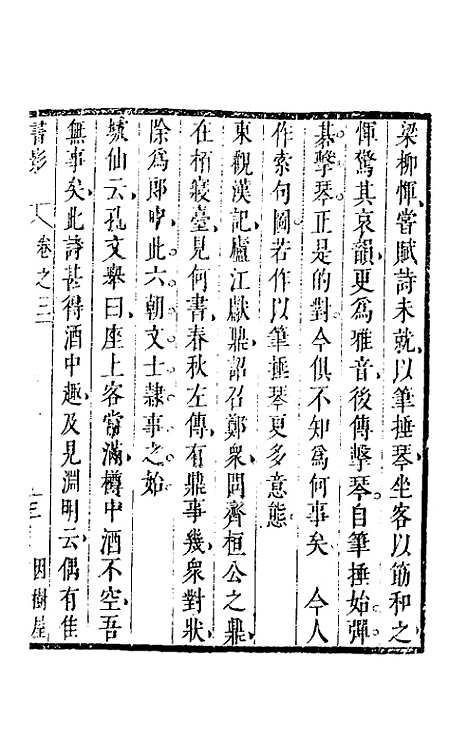 梁柳惲嘗賦詩未就以筆捶琴坐客以筯和之
惲驚其哀韻更爲雅音後傳擊琴自筆捶始彈
棊擊琴正是的對今俱不知爲何事矣　今人
作索句圖若作以筆捶琴更多意態
東觀漢記廬江獻鼎詔召鄭衆問齊桓公之鼎
在栢寢臺見何書春秋左傳有鼎事幾衆對狀
除爲郎中此六朝文士隷事之始
坡仙云孔文舉曰座上客常滿樽中酒不空吾
無事矣此詩甚得酒中趣及見淵明云偶有佳
書影　卷之三　因樹屋